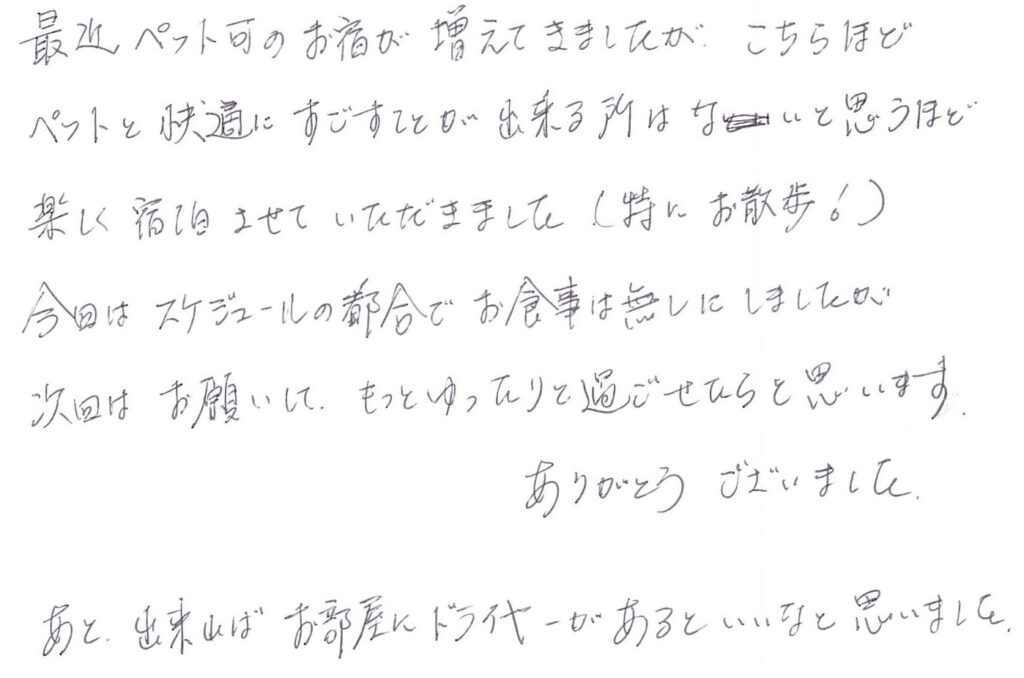 最近ペット可のお宿が増えてきましたが、こちらほど
ペットと快適にすごすことが出来る所はないと思うほど
楽しく宿泊させていただきました(特にお散歩!)
今回はスケジュールの都合でお食事は無しにしましたが
次回はお願いして、もっとゆったりと過ごせたらと思います。
ありがとうございました。
あと、出来ればお部屋にドライヤーがあるといいなと思いました。